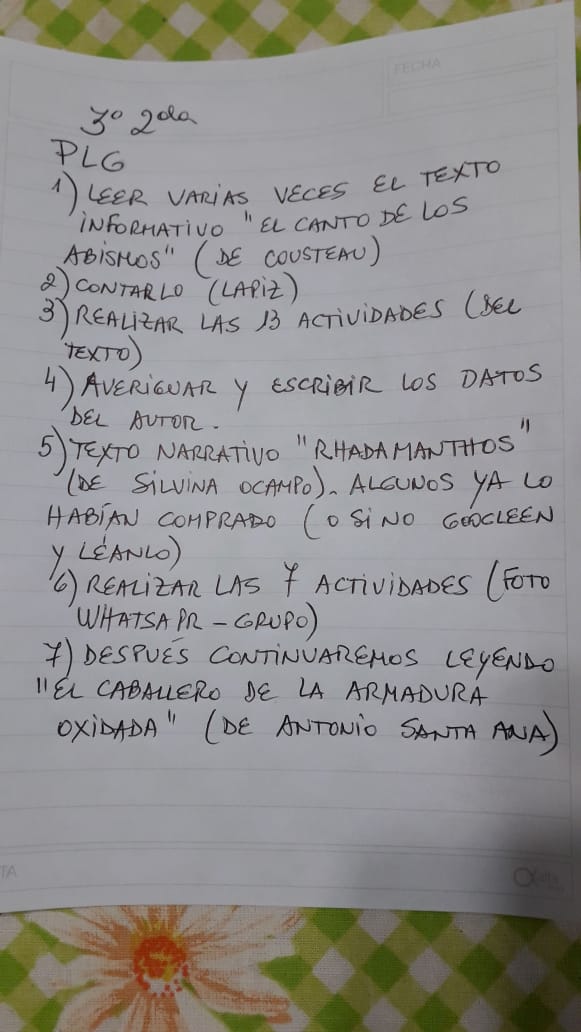 FECHA
3° 2da
PLG
1) LEER VARIAS VECES EL TEXTO
INFORMATIVO "EL CANTO DE LOS
ABISMOS" (DE COUSTEAU)
2) CONTARLO (LAPIZ)
3) REALIZAR LAS 13 ACTIVIDADES (DEL
TEXTO)
4) AVERIGUAR Y ESCRIBIR LOS DATOS
DEL AUTOR.
5) TEXTO NARRATIVO "RHADAMANTHOS"
(DE SILVINA OCAMPO). ALGUNOS YA LO
HABÍAN COMPRADO (O SI NO GOOGLEEN
Y LÉANLO)
6) REALIZAR LAS 7 ACTIVIDADES (FOTO
WHATSAPP - GRUPO)
7) DESPUÉS CONTINUAREMOS LEYENDO
"EL CABALLERO DE LA ARMADURA
OXIDADA" (DE ANTONIO SANTA ANA)
TA